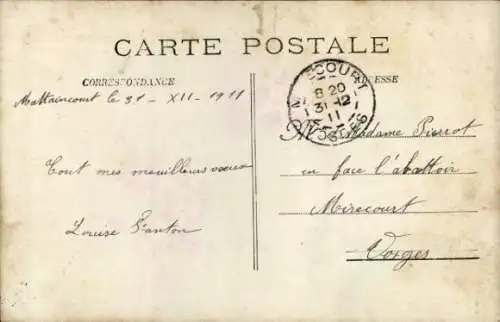 CARTE POSTALE
CORRESPONDANCE
ADRESSE
Mattaincourt le 31 - XII - 1911
Tout mes meuilleurs vœux
Louise Fanton
MIRECOURT
8 20
31 - 12
11
VOSGES
Madame Pierrot
en face l'abattoir
Mirecourt
Vosges